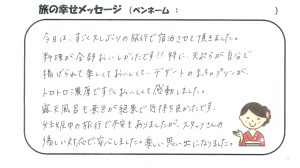 旅の幸せメッセージ（ペンネーム：　　　　　）
今日は、すごく久しぶりの旅行で宿泊させて頂きました。
料理が全部おいしかったです!! 特に、天ぷらが自分で
揚げられて楽しくておいしくて、デザートのまっ茶プリンが、
トロトロ濃厚ですごくおいしくて感動しました。
露天風呂も景色が絶景で気持ち良かったです。
妊娠中の旅行で不安もありましたが、スタッフさんの
優しい対応で安心しました。楽しい思い出になりました。